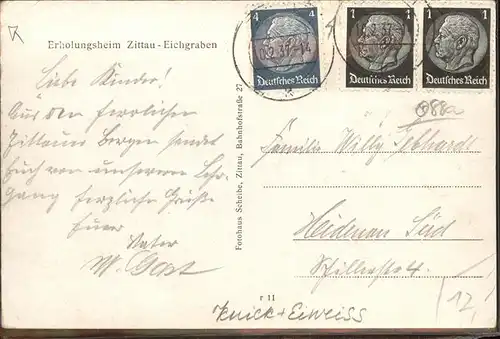 Erholungsheim Zittau-Eichgraben
4 4
Deutsches Reich
1 1
Deutsches Reich
1 1
Deutsches Reich
Liebe Kinder!
Aus den herrlichen
Zittauer Bergen sendet
Euch von unserem
gang herzliche Grüße
Euer
Vater
M. Gast
Fotohaus Scheibe, Zittau, Bahnhofstraße 27
088a
Familie Willy Gebhardt
Heidenau Süd
Schillerstr 4.
r 11
Knick + Eiweiss
12,